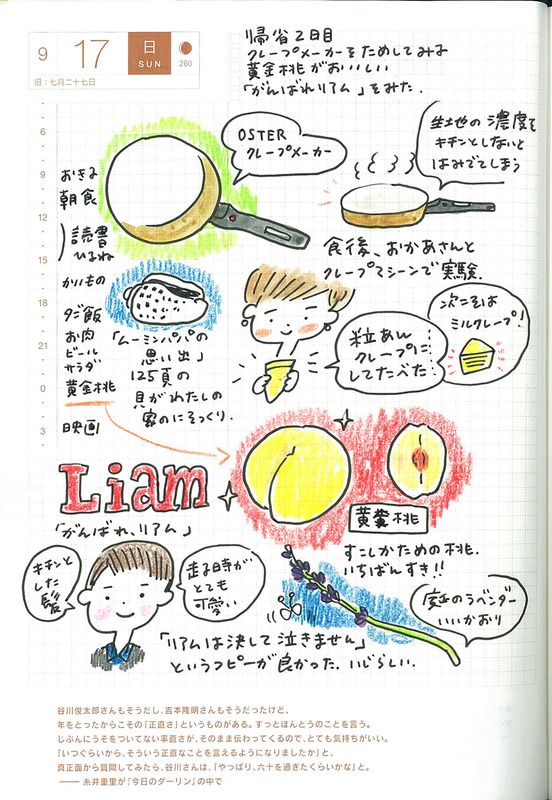 9
17
日
SUN
260
旧:七月二十七日
帰省2日目
クレープメーカーをためしてみる
黄金桃がおいしい
「がんばれリアム」をみた.
6
9
12
15
18
21
0
3
おきる
朝食
読書
ひるね
かいもの
夕ご飯
お肉
ビール
サラダ
黄金桃
映画
OSTER
クレープメーカー
生地の濃度を
キチンとしないと
はみでてしまう
食後、おかあさんと
クレープマシーンで実験.
「ムーミンパパの
思い出」
125頁の
貝がわたしの
家のにそっくり.
粒あん
クレープに
してたべた
次こそは
ミルクレープ!
Liam
「がんばれ、リアム」
黄 桃
すこしかための桃.
いちばんすき!!
キチンと
した
髪
走る時が
とても
可愛い
のラベンダー
いいかおり
「リアムは決して泣きません」
というコピーが良かった. いじらしい.
谷川俊太郎さんもそうだし、吉本隆明さんもそうだったけど、
年をとったからこその「正直さ」というものがある。すっとほんとうのことを言う。
じぶんにうそをついてない率直さが、そのまま伝わってくるので、とても気持ちがいい。
「いつぐらいから、そういう正直なことを言えるようになりましたか」と、
真正面から質問してみたら、谷川さんは、「やっぱり、六十を過ぎたくらいかな」と。
――― 糸井重里が『今日のダーリン』の中で